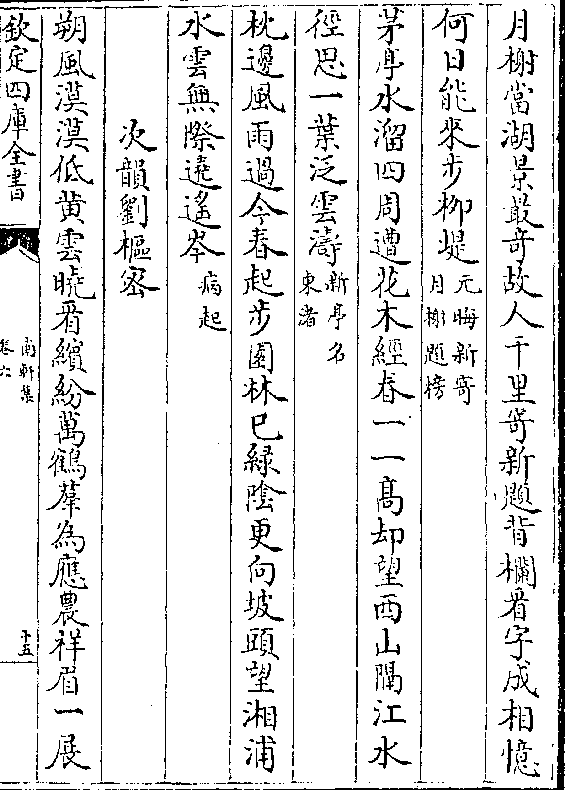 月榭當湖景最奇故人千里寄新題背欄看字成相憶
何日能來步柳堤元晦新寄
月榭題榜
茅亭水溜四周遭花木經春一一髙却望西山隔江水
徑思一葉泛雲濤新亭名
東渚
枕邊風雨過今春起步園林已緑陰更向坡頭望湘浦
水雲無際遶遙岑病起
次韻劉樞密
朔風漠漠低黄雲曉看繽紛萬鶴羣為應農祥眉一展
欽定四庫全書
南軒集
卷六
十五